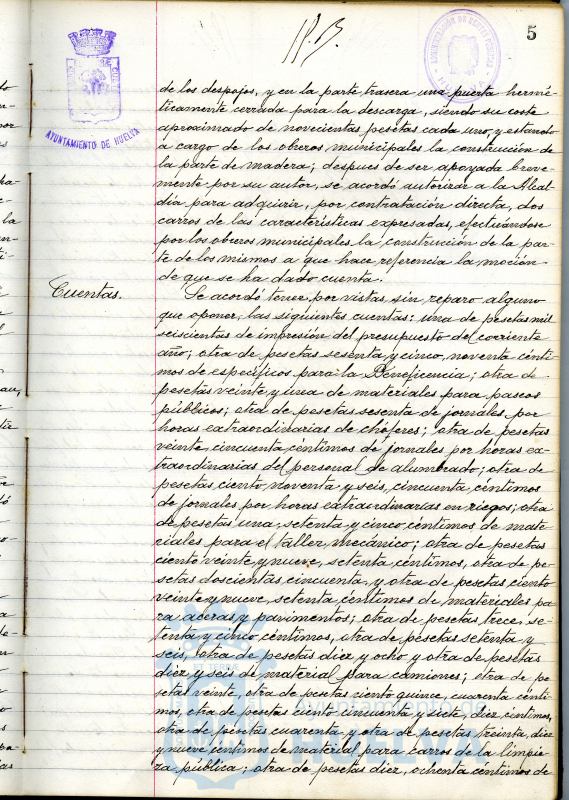 5
AYUNTAMIENTO DE HUELVA
de los despojos, y en la parte trasera una puerta hermé-
ticamente cerrada para la descarga, siendo su coste
aproximado de novecientas pesetas cada uno, y estando
a cargo de los obreros municipales la construcción de
la parte de madera; despues de ser apoyada breve-
mente por su autor, se acordó autorizar a la Alcal-
día para adquirir, por contratación directa, dos
carros de las características expresadas, efectuándose
por los obreros municipales la construcción de la par-
te de los mismos a que hace referencia la moción
de que se ha dado cuenta.
Cuentas.
Se acordó tener por vistas sin reparo alguno
que oponer, las siguientes cuentas: una de pesetas mil
seiscientas de impresión del presupuesto del corriente
año; otra de pesetas sesenta y cinco, noventa cénti-
mos de específicos para la Beneficencia; otra de
pesetas veinte y una de materiales para paseos
públicos; otra de pesetas sesenta de jornales por
horas extraordinarias de chóferes; otra de pesetas
veinte, cincuenta céntimos de jornales por horas ex-
traordinarias del personal de alumbrado; otra de
pesetas ciento noventa y seis, cincuenta céntimos
de jornales por horas extraordinarias en riegos; otra
de pesetas una, setenta y cinco céntimos de mate-
riales para el taller mecánico; otra de pesetas
ciento veinte y nueve, setenta céntimos, otra de pe-
setas doscientas cincuenta, y otra de pesetas ciento
veinte y nueve, setenta céntimos de materiales pa-
ra aceras y pavimentos; otra de pesetas trece, se-
tenta y cinco céntimos, otra de pesetas setenta y
seis, otra de pesetas diez y ocho y otra de pesetas
diez y seis de material para camiones; otra de pe-
setas veinte, otra de pesetas ciento quince, cuarenta cénti-
mos, otra de pesetas ciento cincuenta y siete, diez céntimos,
otra de pesetas cuarenta y otra de pesetas treinta, diez
y nueve céntimos de material para carros de la limpie-
za pública; otra de pesetas diez, ochenta céntimos de